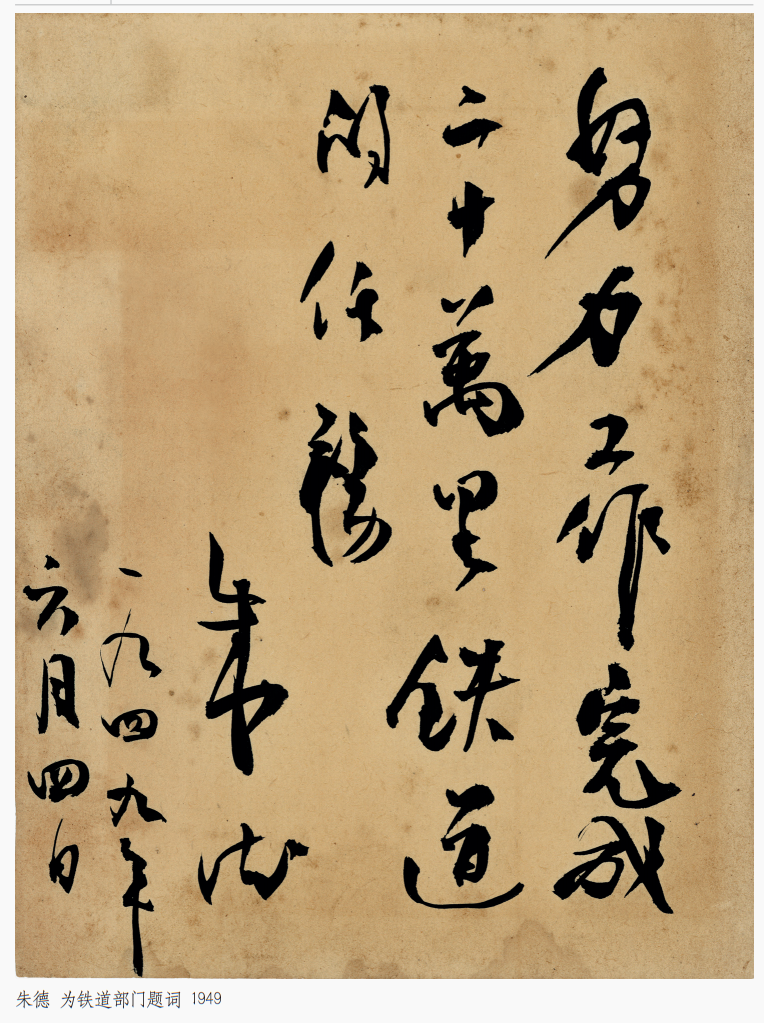 努力工作完成
二十萬里鉄道
的任務
朱德
一九四九年
六月四日
朱德 为铁道部门题词 1949